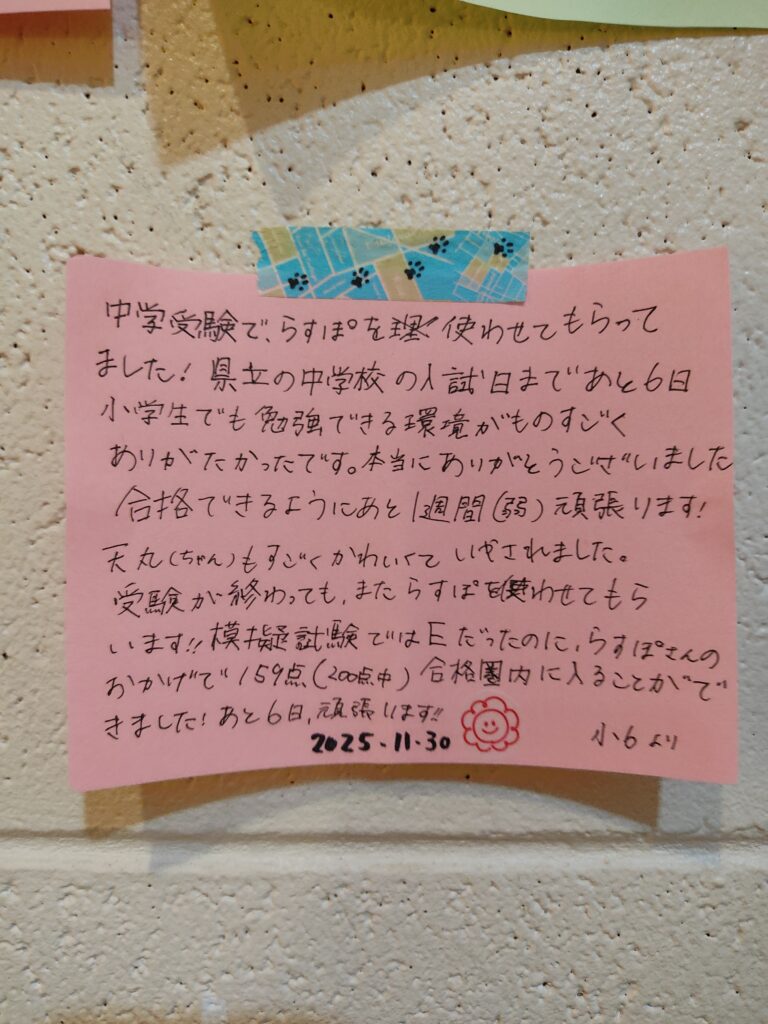 中学受験で、らすぽを使わせてもらって
ました！県立の中学校の入試日まであと6日
小学生でも勉強できる環境がものすごく
ありがたかったです。本当にありがとうございました
合格できるようにあと1週間(弱)頑張ります!
天丸(ちゃん)もすごくかわいくていやされました。
受験が終わっても、またらすぽを使わせてもら
います!!模擬試験ではEだったのに、らすぽさんの
おかげで159点(200点中)合格圏内に入ることがで
きました!あと6日,頑張います!!
2025.11.30
小6より